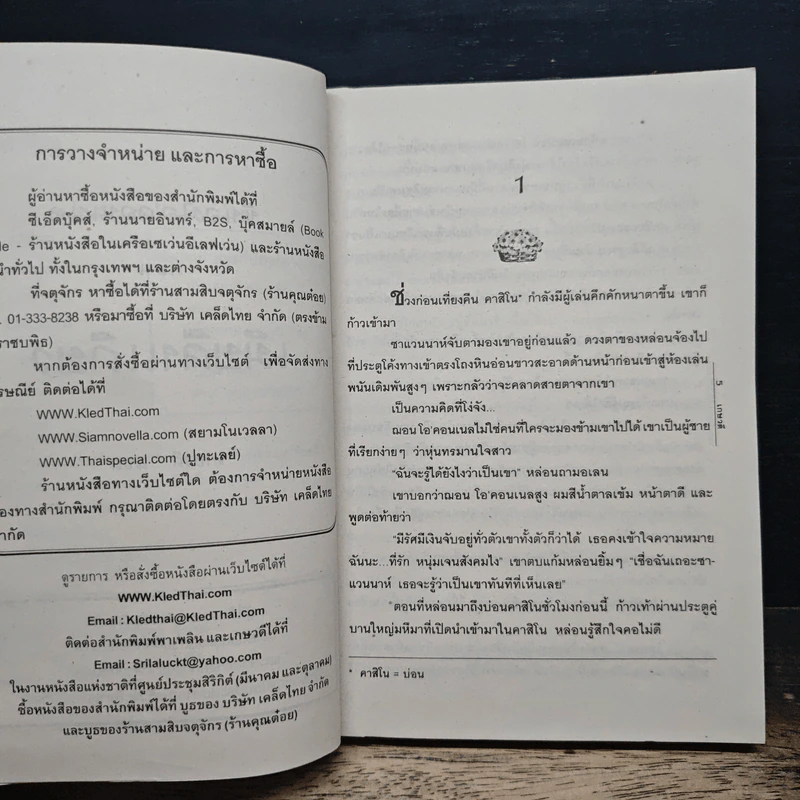 การวางจำหน่าย และการหาซื้อ
ผู้อ่านหาซื้อหนังสือของสำนักพิมพ์ได้ที่
ซีเอ็ดบุ๊คส์, ร้านนายอินทร์, B2S, บุ๊คสมายล์ (Book
le - ร้านหนังสือในเครือเซเว่นอีเลฟเว่น) และร้านหนังสือ
นำทั่วไป ทั้งในกรุงเทพฯ และต่างจังหวัด
ที่จตุจักร หาซื้อได้ที่ร้านสามสิบจตุจักร (ร้านคุณต๋อย)
. 01-333-8238 หรือมาซื้อที่ บริษัท เคล็ดไทย จำกัด (ตรงข้าม
ราชบพิธ)
หากต้องการสั่งซื้อผ่านทางเว็บไซต์ เพื่อจัดส่งทาง
รษณีย์ ติดต่อได้ที่
WWW.KledThai.com
WWW.Siamnovella.com (สยามโนเวลลา)
WWW.Thaispecial.com (ปูทะเลย์)
ร้านหนังสือทางเว็บไซต์ใด ต้องการจำหน่ายหนังสือ
องทางสำนักพิมพ์ กรุณาติดต่อโดยตรงกับ บริษัท เคล็ดไทย
จำกัด
ดูรายการ หรือสั่งซื้อหนังสือผ่านเว็บไซต์ได้ที่
WWW.KledThai.com
Email : Kledthai@KledThai.com
ติดต่อสำนักพิมพ์พาเพลิน และเกษวดีได้ที่
Email : Srilaluckt@yahoo.com
ในงานหนังสือแห่งชาติที่ศูนย์ประชุมสิริกิต์ (มีนาคม และตุลาคม)
ซื้อหนังสือของสำนักพิมพ์ได้ที่ บูธของ บริษัท เคล็ดไทย จำกัด
และบูธของร้านสามสิบจตุจักร (ร้านคุณต๋อย)
1
ช่วงก่อนเที่ยงคืน คาสิโน* กำลังมีผู้เล่นคึกคักหนาตาขึ้น เขาก็
ก้าวเข้ามา
ซาแวนนาห์จับตามองเขาอยู่ก่อนแล้ว ดวงตาของหล่อนจ้องไป
ที่ประตูโค้งทางเข้าตรงโถงหินอ่อนขาวสะอาดด้านหน้าก่อนเข้าสู่ห้องเล่น
พนันเดิมพันสูงๆ เพราะกลัวว่าจะคลาดสายตาจากเขา
เป็นความคิดที่โง่จัง...
ฌอน โอ'คอนเนลไม่ใช่คนที่ใครจะมองข้ามเขาไปได้ เขาเป็นผู้ชาย
ที่เรียกง่ายๆ ว่าหุ่นทรมานใจสาว
"ฉันจะรู้ได้ยังไงว่าเป็นเขา" หล่อนถามอเลน
เขาบอกว่าฌอน โอ'คอนเนลสูง ผมสีน้ำตาลเข้ม หน้าตาดี และ
พูดต่อท้ายว่า
"มีรัศมีเงินจับอยู่ทั่วตัวเขาทั้งตัวก็ว่าได้ เธอคงเข้าใจความหมาย
ฉันนะ...ที่รัก หนุ่มเจนสังคมไง" เขาตบแก้มหล่อนยิ้มๆ "เชื่อฉันเถอะซา-
แวนนาห์ เธอจะรู้ว่าเป็นเขาทันทีที่เห็นเลย"
"ตอนที่หล่อนมาถึงบ่อนคาสิโนชั่วโมงก่อนนี้ ก้าวเท้าผ่านประตูคู่
บานใหญ่มหึมาที่เปิดนำเข้ามาในคาสิโน หล่อนรู้สึกใจคอไม่ดี
* คาสิโน = บ่อน
5
เกษวดี